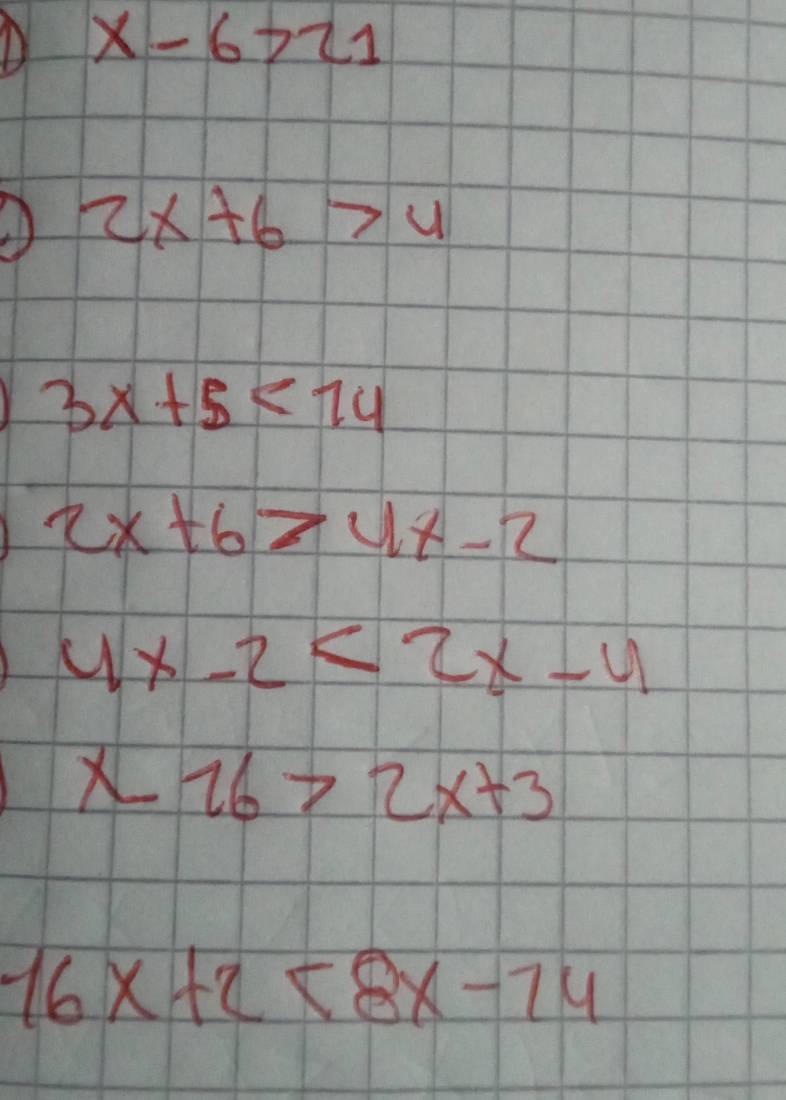 1) x - 6 > 21
2x + 6 > 4
3x + 5 < 14
2x + 6 > 4x - 2
4x - 2 < 2x - 4
x - 16 > 2x + 3
16x + 2 < 8x - 14